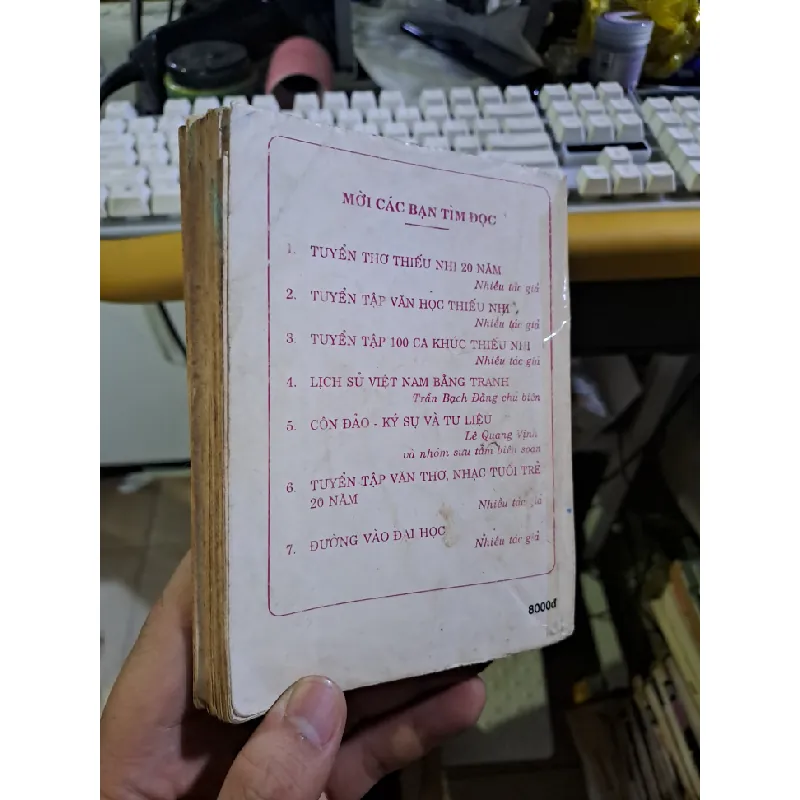 MỜI CÁC BẠN TÌM ĐỌC
1. TUYỂN THƠ THIẾU NHI 20 NĂM
Nhiều tác giả
2. TUYỂN TẬP VĂN HỌC THIẾU NHI
Nhiều tác giả
3. TUYỂN TẬP 100 CA KHÚC THIẾU NHI
Nhiều tác giả
4. LỊCH SỬ VIỆT NAM BẰNG TRANH
Trần Bạch Đằng chủ biên
5. CÔN ĐẢO - KÝ SỰ VÀ TƯ LIỆU
Lê Quang Vịnh
và nhóm sưu tầm biên soạn
6. TUYỂN TẬP VĂN THƠ, NHẠC TUỔI TRẺ
20 NĂM
Nhiều tác giả
7. ĐƯỜNG VÀO ĐẠI HỌC
Nhiều tác giả
8000đ